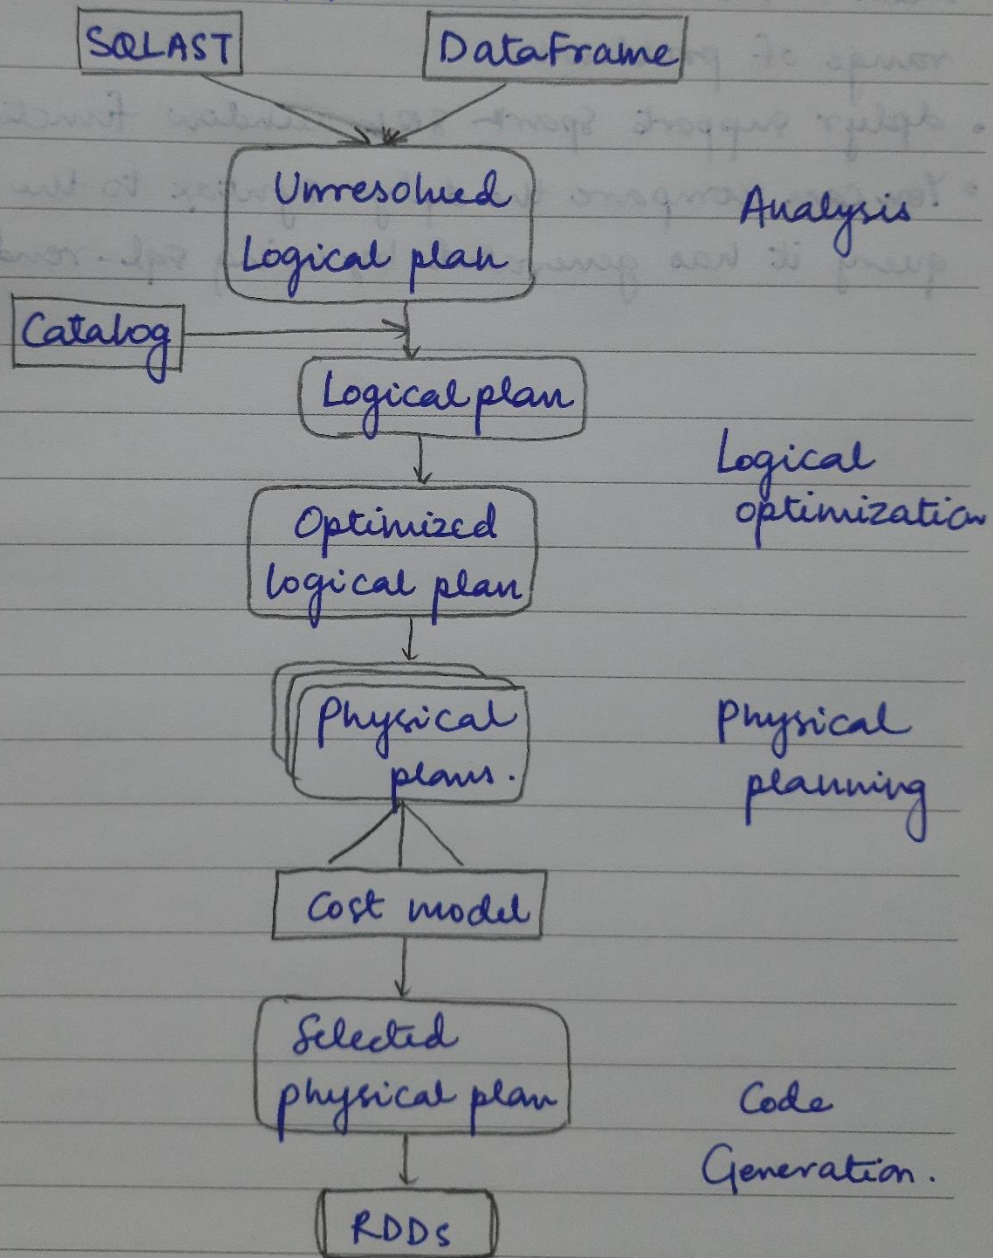 SQLAST
DataFrame
Unresolved
Logical plan
Analysis
Catalog
Logical plan
Logical
optimization
Optimized
logical plan
Physical
plans.
Physical
planning
Cost model
Selected
physical plan
Code
Generation.
RDDs